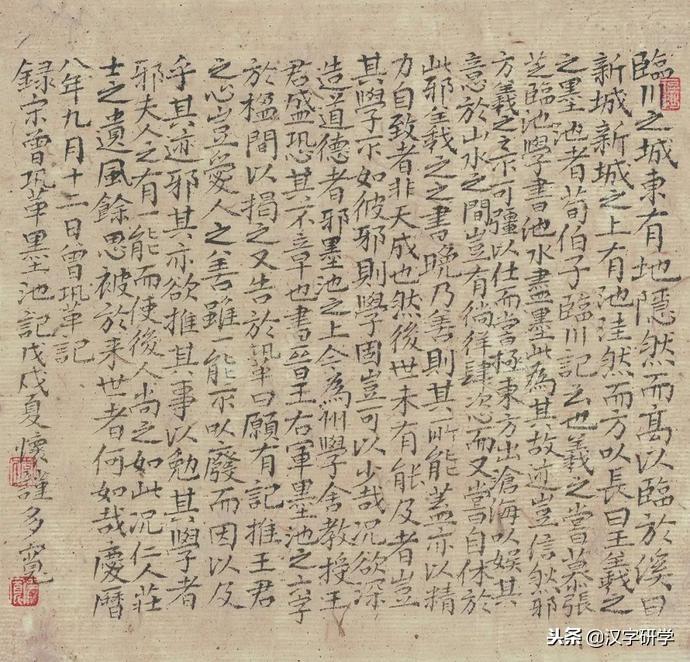 臨川之城東有地隱然而高以臨於溪曰
新城新城之上有池洼然而方以長曰王羲之
之墨池者荀伯子臨川記云也羲之嘗慕張
芝臨池學書池水盡墨此為其故迹豈信然邪
方羲之之不可彊以仕而嘗極東方出滄海以娛其
意於山水之間豈有徜徉肆恣而又嘗自休於
此邪羲之之書晚乃善則其所能蓋亦以精
力自致者非天成也然後世未有能及者豈
其學不如彼邪則學固豈可以少哉況欲深
造道德者邪墨池之上今為州學舍教授王
君盛恐其不章也書晉王右軍墨池之六字
於楹間以揭之又告於鞏曰願有記推王君
之心豈愛人之善雖一能不以廢而因以及
乎其迹邪其亦欲推其事以勉其學者
邪夫人之有一能而使後人尚之如此況仁人莊
士之遺風餘思被於来世者何如哉慶曆
八年九月十二日曾鞏記
録宋曾鞏墨池記戊戌夏懷謹多寬
头条 @汉字研学